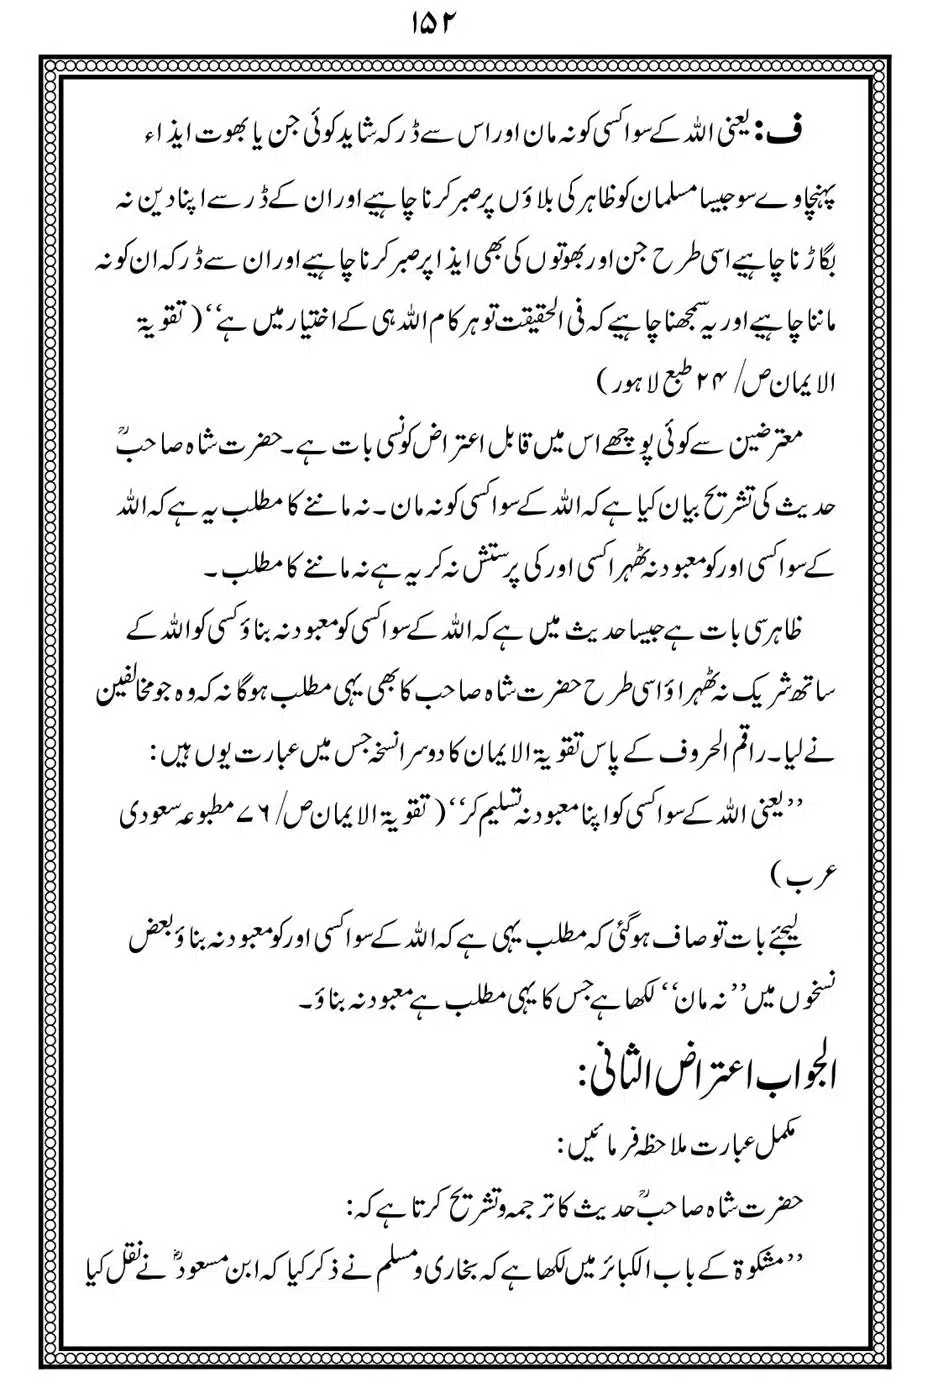 ۱۵۲
ف: یعنی اللہ کے سوا کسی کو نہ مان اور اس سے ڈر کہ شاید کوئی جن یا بھوت ایذاء
پہنچاوے سو جیسا مسلمان کو ظاہر کی بلاؤں پر صبر کرنا چاہیے اور ان کے ڈر سے اپنا دین نہ
بگاڑنا چاہیے اسی طرح جن اور بھوتوں کی بھی ایذا پر صبر کرنا چاہیے اور ان سے ڈر کہ ان کو نہ
ماننا چاہیے اور یہ سمجھنا چاہیے کہ فی الحقیقت تو ہر کام اللہ ہی کے اختیار میں ہے‘‘ (تقویۃ
الایمان ص/ ۲۴ طبع لاہور)
معترضین سے کوئی پوچھے اس میں قابل اعتراض کونسی بات ہے۔ حضرت شاہ صاحبؒ
حدیث کی تشریح بیان کیا ہے کہ اللہ کے سوا کسی کو نہ مان۔ نہ ماننے کا مطلب یہ ہے کہ اللہ
کے سوا کسی اور کو معبود نہ ٹھہرا کسی اور کی پرستش نہ کر یہ ہے نہ ماننے کا مطلب۔
ظاہر سی بات ہے جیسا حدیث میں ہے کہ اللہ کے سوا کسی کو معبود نہ بناؤ کسی کو اللہ کے
ساتھ شریک نہ ٹھہراؤ اسی طرح حضرت شاہ صاحب کا بھی یہی مطلب ہوگا نہ کہ وہ جو مخالفین
نے لیا۔ راقم الحروف کے پاس تقویۃ الایمان کا دوسرا نسخہ جس میں عبارت یوں ہیں:
’’یعنی اللہ کے سوا کسی کو اپنا معبود نہ تسلیم کر‘‘ (تقویۃ الایمان ص/ ۷۶ مطبوعہ سعودی
عرب)
لیجئے بات تو صاف ہوگئی کہ مطلب یہی ہے کہ اللہ کے سوا کسی اور کو معبود نہ بناؤ بعض
نسخوں میں ’’نہ مان‘‘ لکھا ہے جس کا یہی مطلب ہے معبود نہ بناؤ۔
الجواب اعتراض الثانی:
مکمل عبارت ملاحظہ فرمائیں:
حضرت شاہ صاحبؒ حدیث کا ترجمہ و تشریح کرتا ہے کہ:
’’مشکوۃ کے باب الکبائر میں لکھا ہے کہ بخاری و مسلم نے ذکر کیا کہ ابن مسعودؓ نے نقل کیا